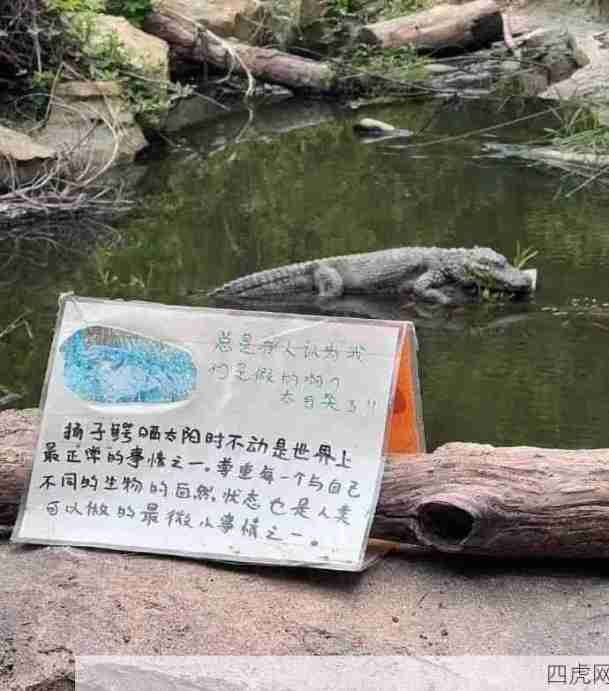 总是有人认为我
们是假的啊？
太可笑了！！
扬子鳄晒太阳时不动是世界上
最正常的事情之一。尊重每一个与自己
不同的生物的自然状态也是人类
可以做的最微小事情之一。
四虎网